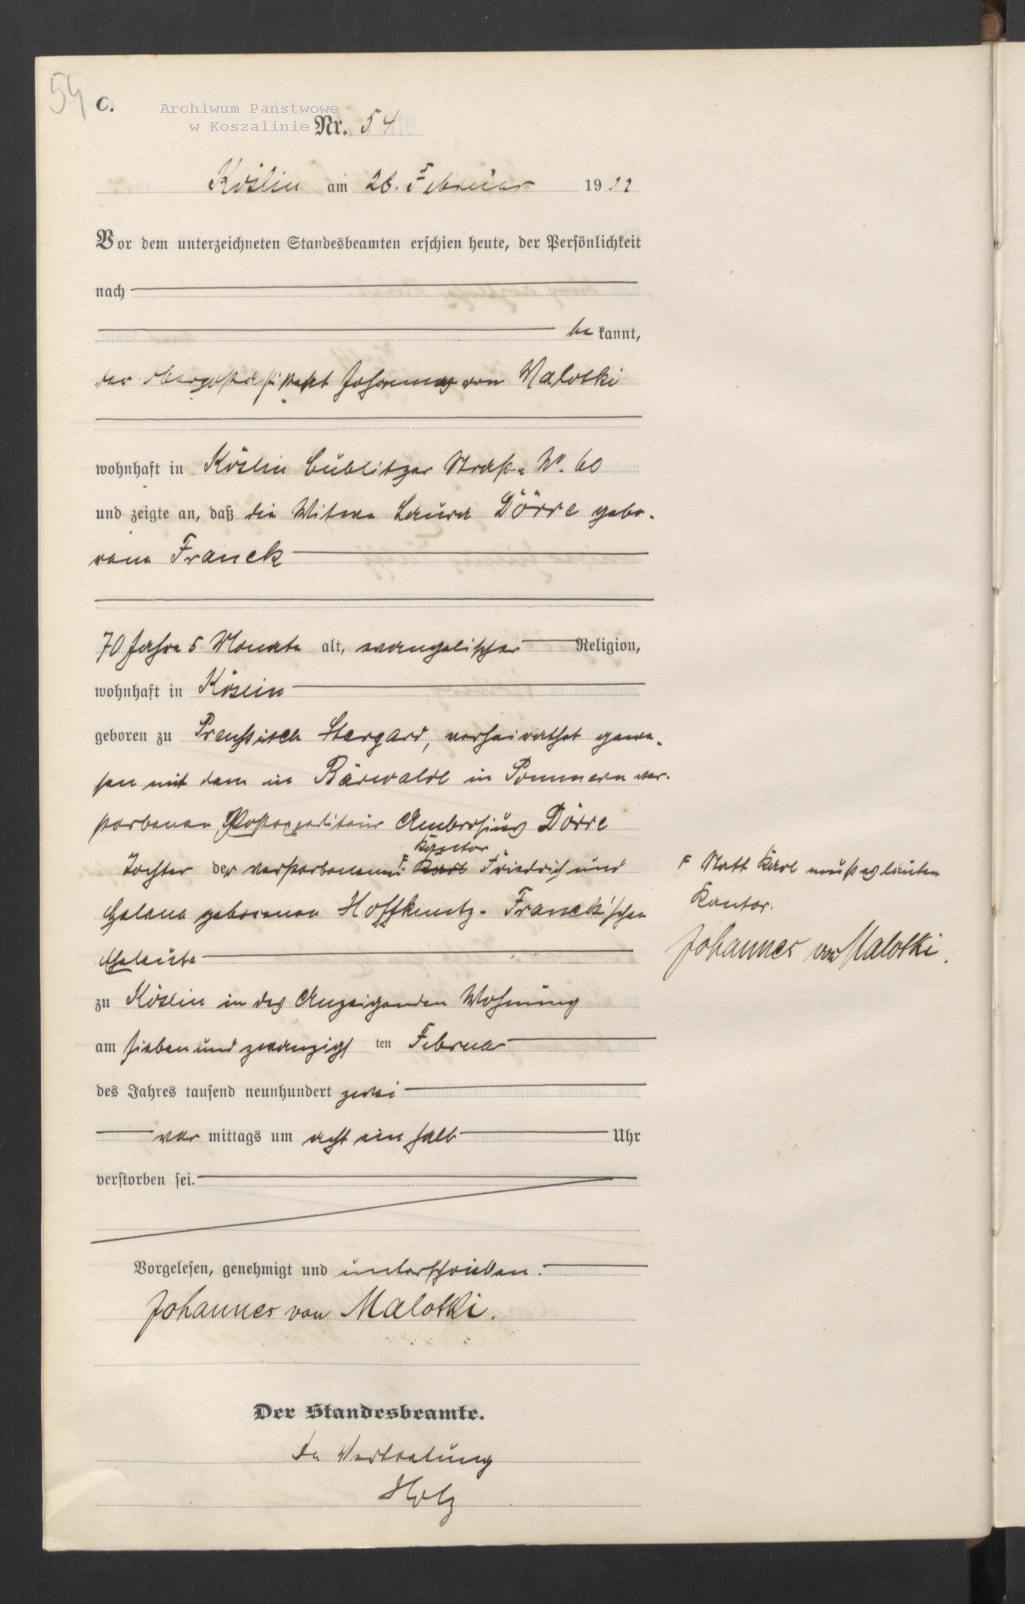 54
C.
Archiwum Państwowe
w Koszalinie
Nr. 54
Köslin am 28. Februar 1902
Vor dem unterzeichneten Standesbeamten erschien heute, der Persönlichkeit
nach
be kannt,
der Johannes von Malotki
wohnhaft in Köslin Bublitzer Straße No. 60
und zeigte an, daß die Witwe Laura Dörre gebo-
rene Franck
70 Jahre 5 Monate alt, evangelischer Religion,
wohnhaft in Köslin
geboren zu Preußisch Stargard, verheirathet gewe-
sen mit dem in Bärwalde in Pommern ver-
storbenen Postexpediteur Ambrosius Dörre
Kantor
Tochter der verstorbenen F Karl Friedrich und
Helena geborenen Hoffkuntz- Franck'schen
Eheleute
F Statt Karl muß es lauten
Kantor.
Johannes von Malotki.
zu Köslin in des Anzeigenden Wohnung
am sieben und zwanzigsten Februar
des Jahres tausend neunhundert zwei
vor mittags um acht ein halb Uhr
verstorben sei.
Vorgelesen, genehmigt und unterschrieben.
Johannes von Malotki.
Der Standesbeamte.
In Vertretung
Holz